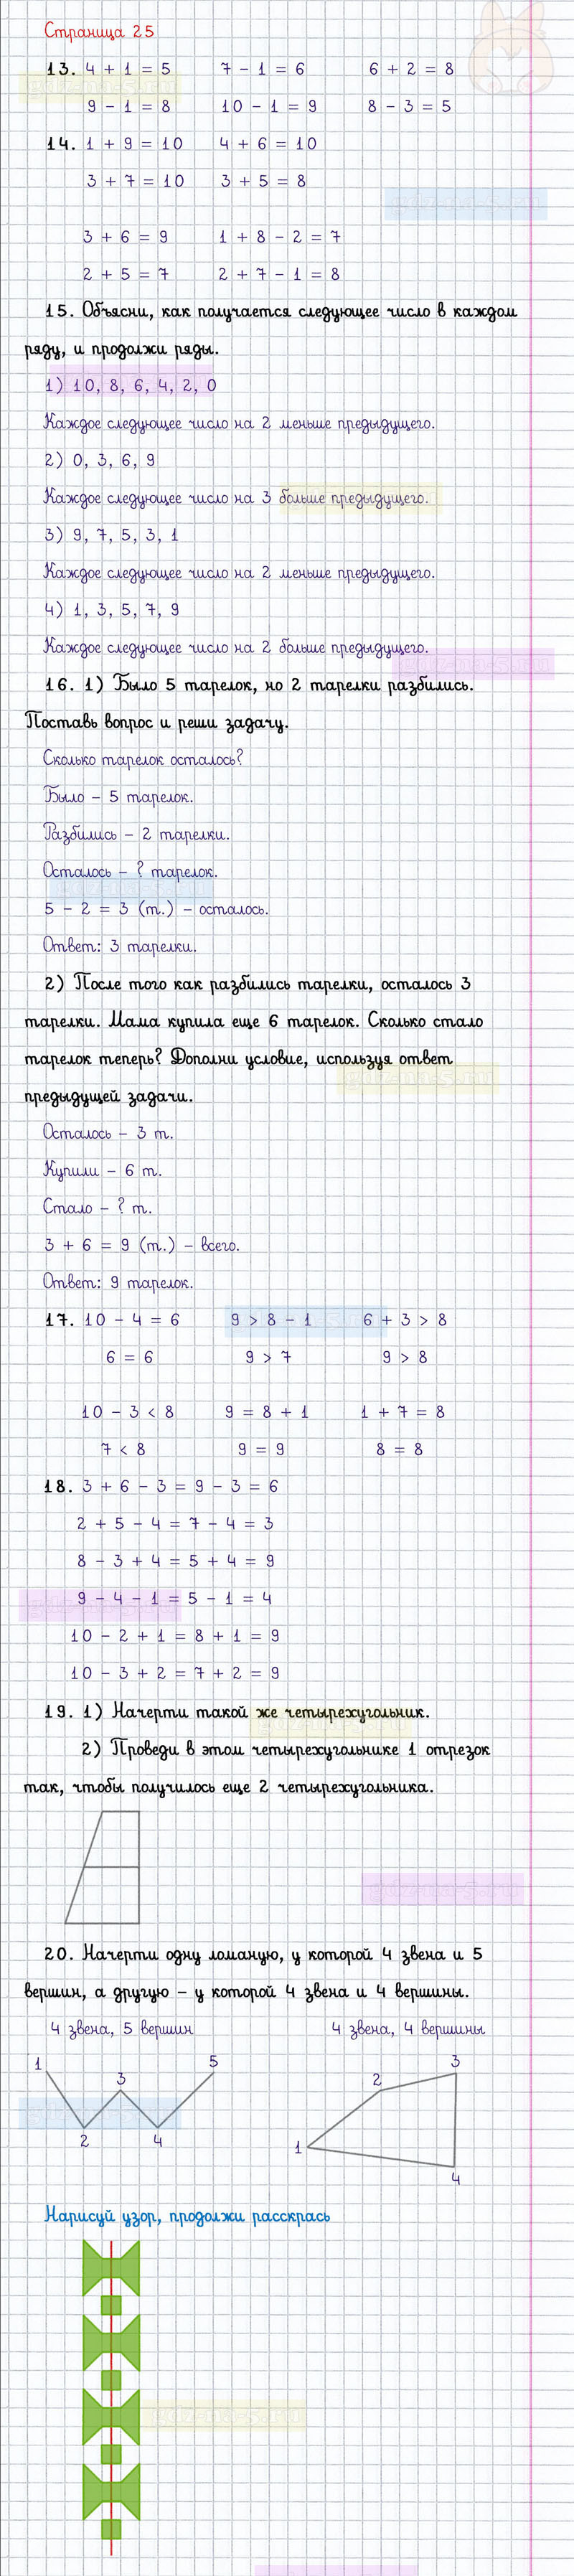 Страница 25
13. 4 + 1 = 5 7 - 1 = 6 6 + 2 = 8
9 - 1 = 8 10 - 1 = 9 8 - 3 = 5
14. 1 + 9 = 10 4 + 6 = 10
3 + 7 = 10 3 + 5 = 8
gdz-na-5.ru
3 + 6 = 9 1 + 8 - 2 = 7
2 + 5 = 7 2 + 7 - 1 = 8
15. Объясни, как получается следующее число в каждом
ряду, и продолжи ряды.
1) 10, 8, 6, 4, 2, 0
Каждое следующее число на 2 меньше предыдущего.
2) 0, 3, 6, 9
Каждое следующее число на 3 больше предыдущего.
3) 9, 7, 5, 3, 1
Каждое следующее число на 2 меньше предыдущего.
4) 1, 3, 5, 7, 9
Каждое следующее число на 2 больше предыдущего.
gdz-na-5.ru
16. 1) Было 5 тарелок, но 2 тарелки разбились.
Поставь вопрос и реши задачу.
Сколько тарелок осталось?
Было – 5 тарелок.
Разбились – 2 тарелки.
Осталось – ? тарелок.
5 - 2 = 3 (т.) – осталось.
Ответ: 3 тарелки.
2) После того как разбились тарелки, осталось 3
тарелки. Мама купила еще 6 тарелок. Сколько стало
тарелок теперь? Дополни условие, используя ответ
gdz-na-5.ru
предыдущей задачи.
Осталось – 3 т.
Купили – 6 т.
Стало – ? т.
3 + 6 = 9 (т.) – всего.
Ответ: 9 тарелок.
17. 10 - 4 = 6 9 > 8 - 1 6 + 3 > 8
6 = 6 9 > 7 9 > 8
10 - 3 < 8 9 = 8 + 1 1 + 7 = 8
7 < 8 9 = 9 8 = 8
18. 3 + 6 - 3 = 9 - 3 = 6
2 + 5 - 4 = 7 - 4 = 3
8 - 3 + 4 = 5 + 4 = 9
9 - 4 - 1 = 5 - 1 = 4
10 - 2 + 1 = 8 + 1 = 9
10 - 3 + 2 = 7 + 2 = 9
19. 1) Начерти такой же четырехугольник.
2) Проведи в этом четырехугольнике 1 отрезок
так, чтобы получилось еще 2 четырехугольника.
gdz-na-5.ru
20. Начерти одну ломаную, у которой 4 звена и 5
вершин, а другую – у которой 4 звена и 4 вершины.
4 звена, 5 вершин 4 звена, 4 вершины
1 3 5 2 3
2 4 1 4
Нарисуй узор, продолжи расскрась
gdz-na-5.ru